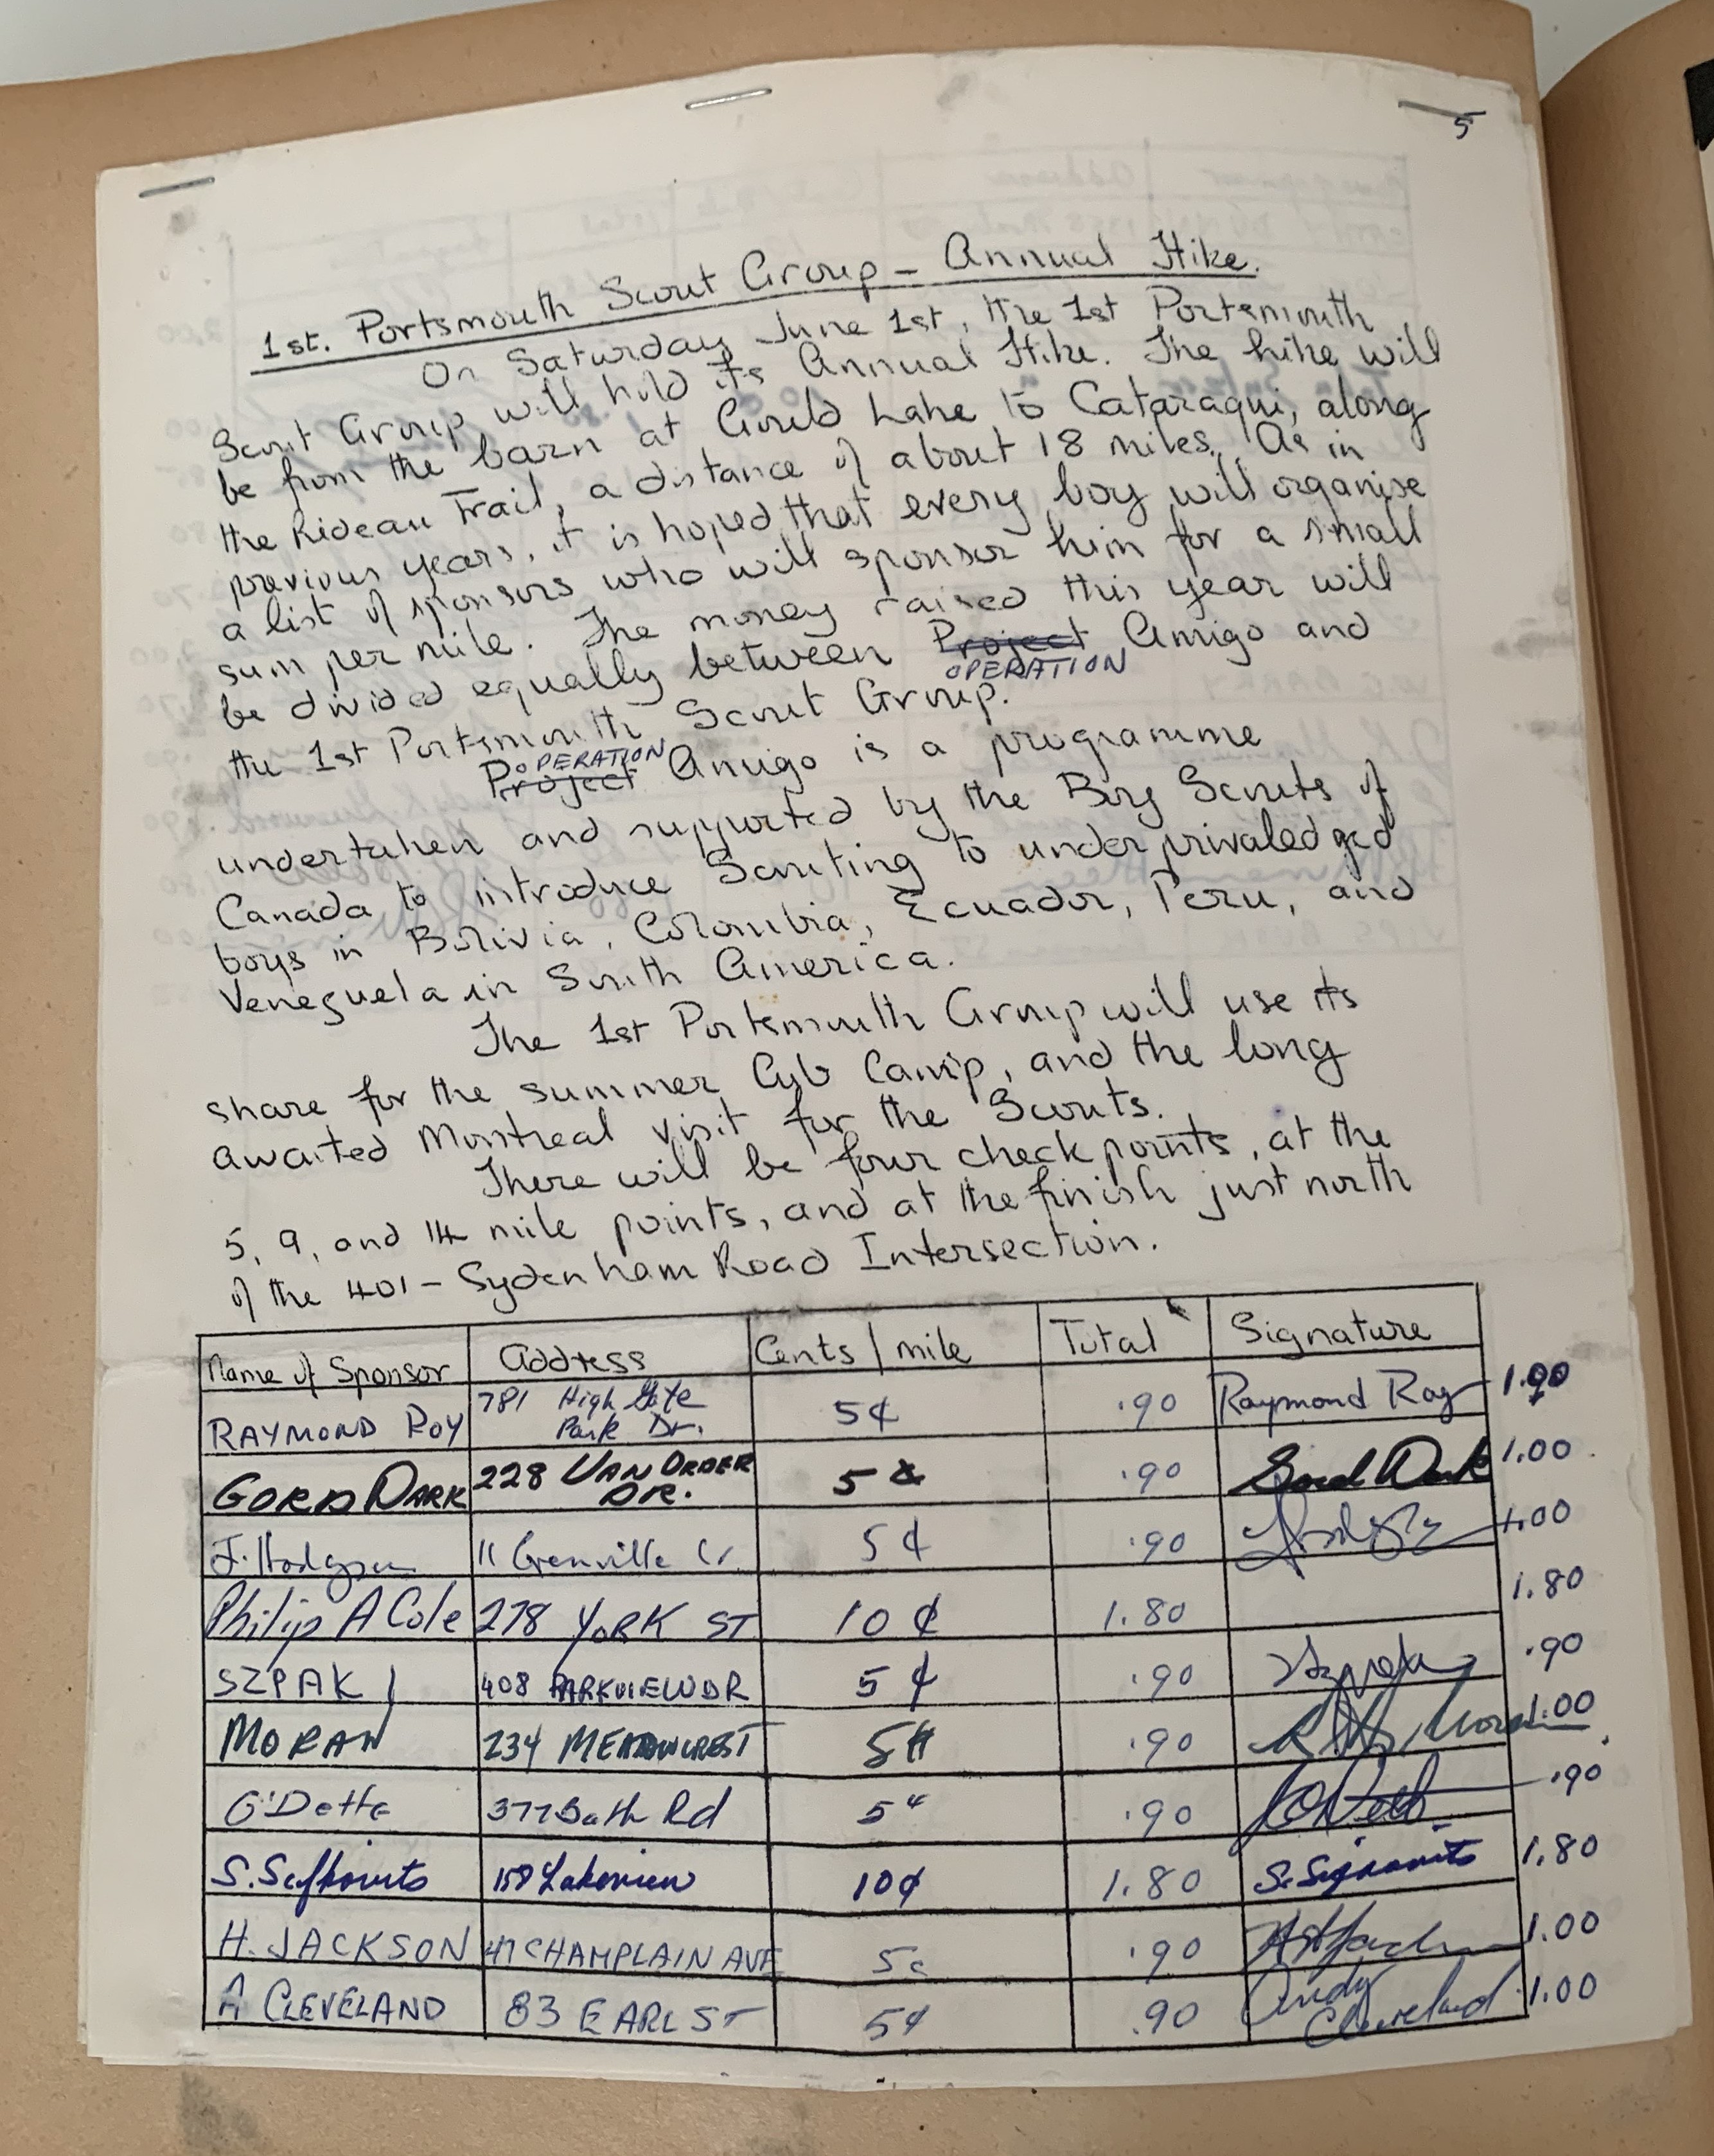 5
1st. Portsmouth Scout Group – Annual Hike.
On Saturday June 1st, the 1st Portsmouth
Scout Group will hold its Annual Hike. The hike will
be from the barn at Gould Lake to Cataraqui, along
the Rideau Trail, a distance of about 18 miles. As in
previous years, it is hoped that every boy will organise
a list of sponsors who will sponsor him for a small
sum per mile. The money raised this year will
be divided equally between Project Amigo and
OPERATION
the 1st Portsmouth Scout Group.
OPERATION
Project Amigo is a programme
undertaken and supported by the Boy Scouts of
Canada to introduce Scouting to underprivaledged
boys in Bolivia, Colombia, Ecuador, Peru, and
Venezuela in South America.
The 1st Portsmouth Group will use its
share for the summer Cub Camp, and the long
awaited Montreal visit for the Scouts.
There will be four check points, at the
5, 9, and 14 mile points, and at the finish just north
of the 401 – Sydenham Road Intersection.
Name of Sponsor Address Cents / mile Total Signature
RAYMOND ROY 781 High Gate Park Dr. 5¢ .90 Raymond Roy 1.00
GORD DARK 228 VAN ORDER DR. 5¢ .90 Gord Dark 1.00
J. Hodgson 11 Grenville Cr. 5¢ .90 1.00
Philip A Cole 278 YORK ST 10¢ 1.80 1.80
SZPAK 408 PARKVIEW DR 5¢ .90 .90
MORAN 234 MEADOWCREST 5¢ .90 Moran 1.00
O'Dette 377 Bath Rd 5¢ .90 .90
S. 159 Lakeview 10¢ 1.80 S. 1.80
H. JACKSON 47 CHAMPLAIN AVE 5c .90 1.00
A CLEVELAND 83 EARL ST 5¢ .90 Andy Cleveland 1.00